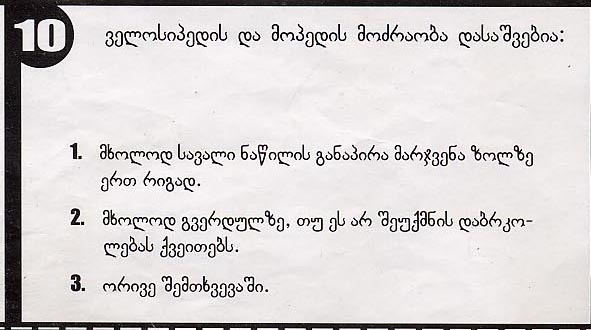 10
ველოსიპედის და მოპედის მოძრაობა დასაშვებია:
1. მხოლოდ სავალი ნაწილის განაპირა მარჯვენა ზოლზე
ერთ რიგად.
2. მხოლოდ გვერდულზე, თუ ეს არ შეუქმნის დაბრკო-
ლებას ქვეითებს.
3. ორივე შემთხვევაში.